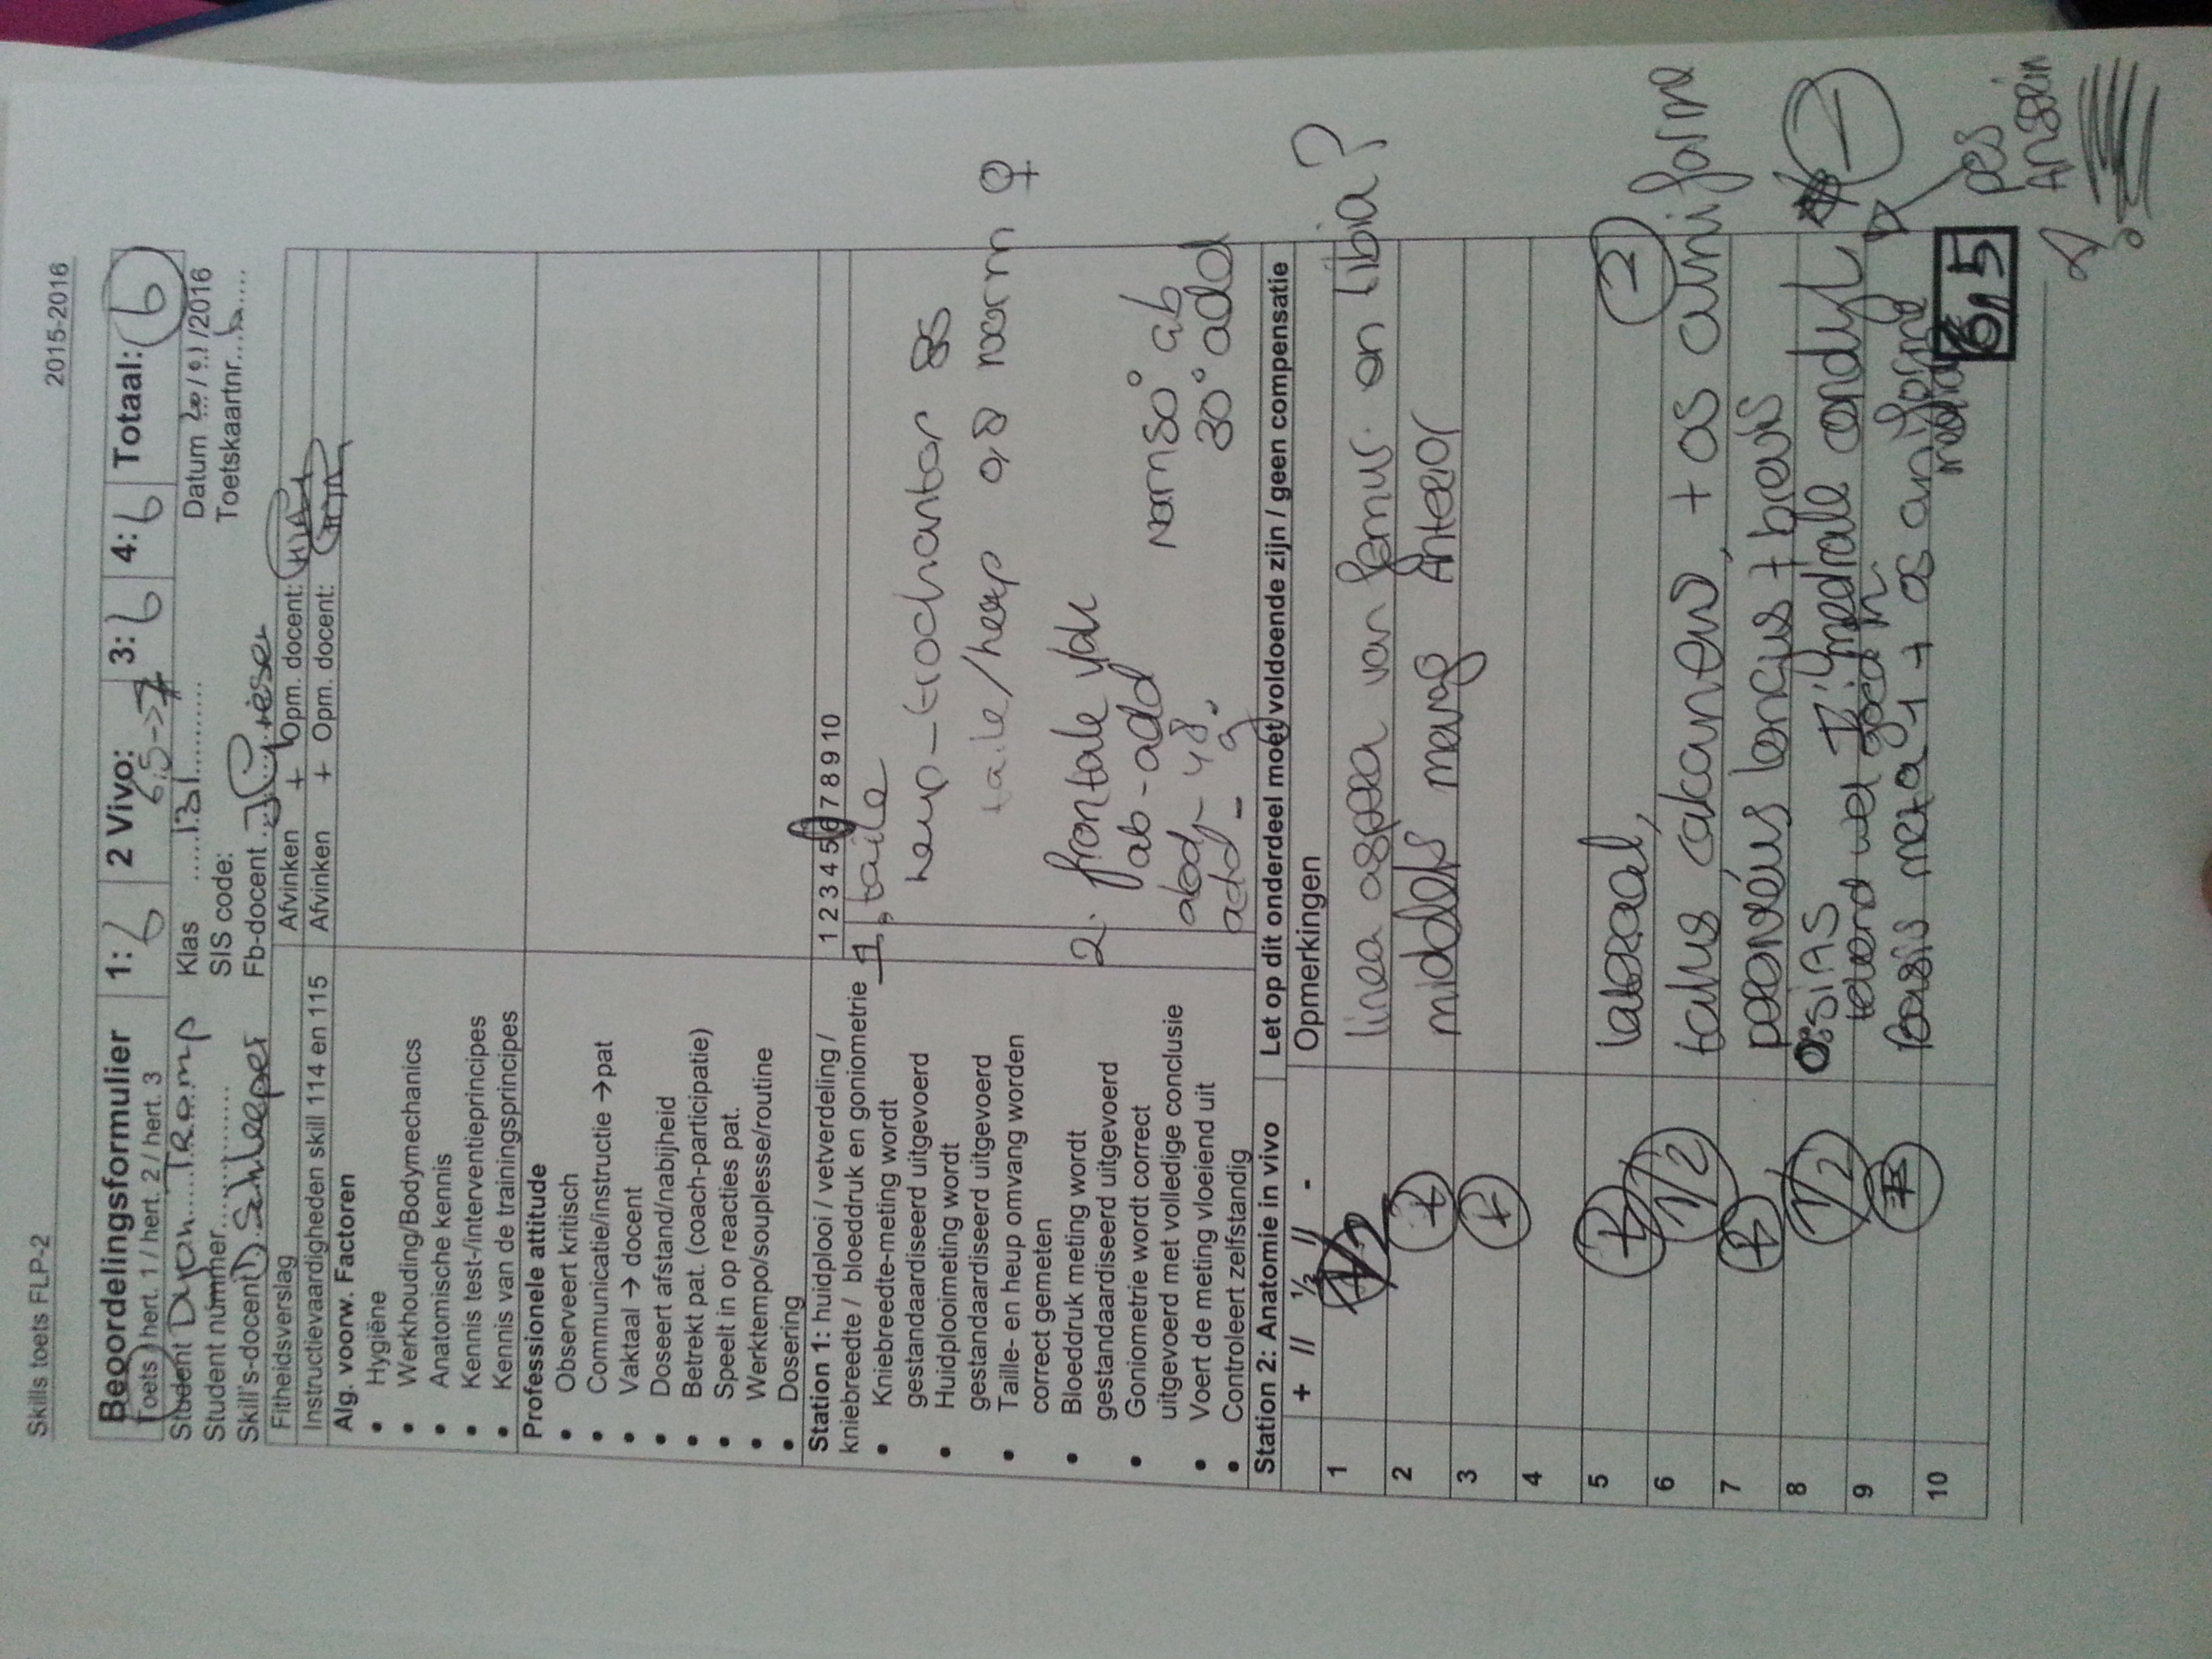 Skills toets FLP-2 2015-2016
Beoordelingsformulier 1: 6 2 Vivo: 6.5->7 3: 6 4: 6 Totaal: 6
Toets / hert. 1 / hert. 2 / hert. 3
Student Dyon Tramp Klas Datum 20/01/2016
Student nummer SIS code: Toetskaartnr.
Skill's-docent Scheeper Fb-docent
Fitheidsverslag Afvinken + Opm. docent:
Instructievaardigheden skill 114 en 115 Afvinken + Opm. docent:
Alg. voorw. Factoren
• Hygiëne
• Werkhouding/Bodymechanics
• Anatomische kennis
• Kennis test-/interventieprincipes
• Kennis van de trainingsprincipes
Professionele attitude
• Observeert kritisch
• Communicatie/instructie →pat
• Vaktaal → docent
• Doseert afstand/nabijheid
• Betrekt pat. (coach-participatie)
• Speelt in op reacties pat.
• Werktempo/souplesse/routine
• Dosering
Station 1: huidplooi / vetverdeling / 1 2 3 4 5 6 7 8 9 10
kniebreedte / bloeddruk en goniometrie 1. taile
• Kniebreedte-meting wordt
gestandaardiseerd uitgevoerd heup-trochantor 85
• Huidplooimeting wordt
gestandaardiseerd uitgevoerd taile/heup 0,8 norm ♀
• Taille- en heup omvang worden
correct gemeten
• Bloeddruk meting wordt 2. frontale vlak
gestandaardiseerd uitgevoerd ab-add
• Goniometrie wordt correct norm 50° ab
uitgevoerd met volledige conclusie abd - 48.
• Voert de meting vloeiend uit 30° add
• Controleert zelfstandig add -
Station 2: Anatomie in vivo Let op dit onderdeel moet voldoende zijn / geen compensatie
+ // ½ // - Opmerkingen
1 1/2 linea aspera van femur en tibia?
2 + middels menag Anterior
3 +
4
5 + lateraal, -2
6 1/2 talus calcaneus, + os cuniforme
7 + peroneus longus + brevis
8 1/2 SIAS mediale condyl -
9
pes
Anserin
10 basis meta 1 + os cuniforme
mediale
6,5